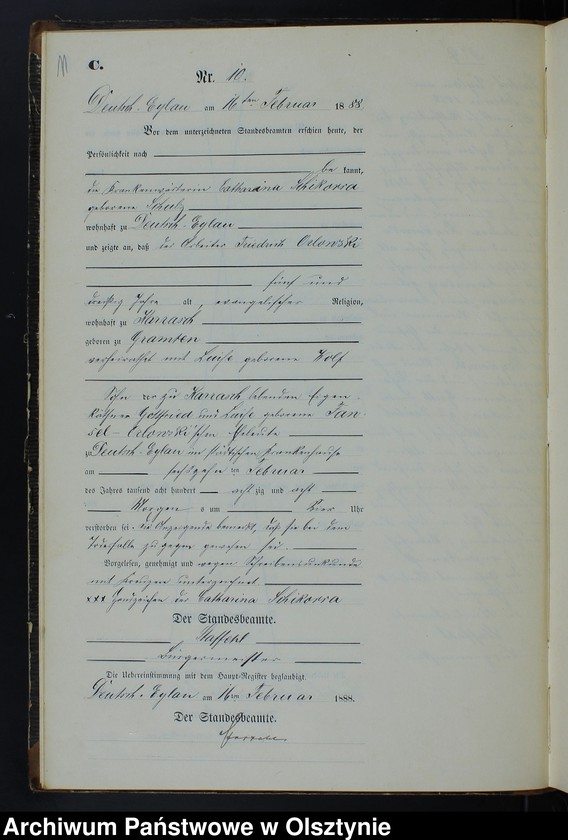 C.
Nr. 10.
Deutsch-Eylau am 16ten Februar 1888
Vor dem unterzeichneten Standesbeamten erschien heute, der
Persönlichkeit nach
bekannt,
die Krankenwärterin Catharina Schikorra
geborene Schulz
wohnhaft zu Deutsch-Eylau
und zeigte an, daß der Arbeiter Friedrich Orlowski
fünf und
dreißig Jahre alt, evangelischer Religion,
wohnhaft zu Karrasch
geboren zu Gramten
verheirathet mit Luise geborene Wolf
Sohn der zu Karrasch lebenden Eigen-
käthner Gottfried und Luise, geborene
Orlowski'schen Eheleute
zu Deutsch-Eylau im städtischen Krankenhause
am sechszehnten Februar
des Jahres tausend acht hundert achtzig und acht
Morgens um vier Uhr
verstorben sei. Die Anzeigende bemerkt, daß sie bei dem
Todesfalle zugegen gewesen sei.
Vorgelesen, genehmigt und wegen Schreibensunkunde
mit Kreuzen unterzeichnet
xxx Handzeichen der Catharina Schikorra
Der Standesbeamte.
Staffehl
Bürgermeister
Die Uebereinstimmung mit dem Haupt-Register beglaubigt.
Deutsch-Eylau am 16ten Februar 1888.
Der Standesbeamte.
Archiwum Państwowe w Olsztynie